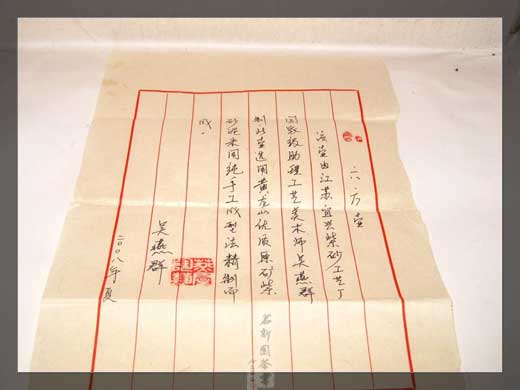 六方壶
该壶由江苏宜兴紫砂工艺厂
国家级助理工艺美术师吴燕群
制此壶选用黄龙山优质原矿紫
砂泥采用纯手工成型法精制而
成。
吴燕群
二〇〇八年夏